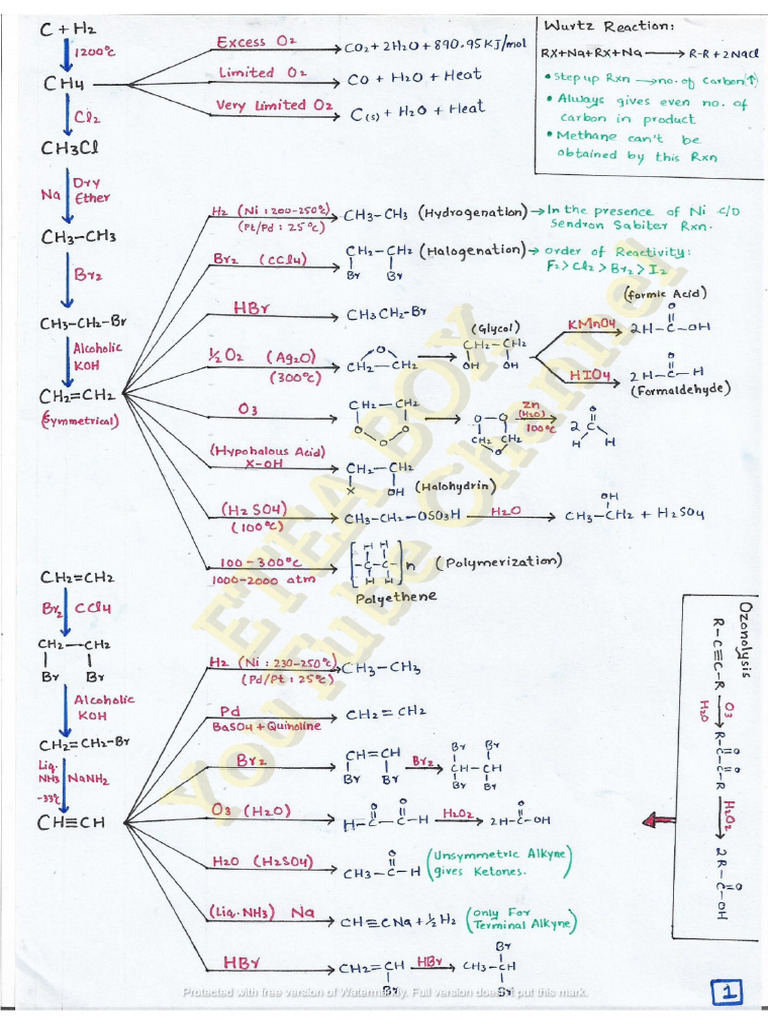 C + H2
1200°C
CH4
Excess O2
CO2 + 2H2O + 890.95 KJ/mol
Limited O2
CO + H2O + Heat
Very Limited O2
C(s) + H2O + Heat
Wurtz Reaction:
RX+Na+RX+Na ⟶ R-R+2NaCl
• Step up Rxn ⟶ no. of Carbon(↑)
• Always gives even no. of
carbon in product
• Methane can't be
obtained by this Rxn
Cl2
CH3Cl
Na Dry
Ether
CH3-CH3
Br2
CH3-CH2-Br
Alcoholic
KOH
CH2=CH2
(Symmetrical)
H2 (Ni : 200-250°C)
(Pt/Pd : 25°C)
CH3-CH3 (Hydrogenation) → In the presence of Ni C/D
Sendron Sabiter Rxn.
Br2 (CCl4)
CH2-CH2 (Halogenation) → order of Reactivity:
Br Br
F2>Cl2>Br2>I2
HBr
CH3CH2-Br
½O2 (Ag2O)
(300°C)
O
CH2-CH2
(Glycol)
CH2-CH2
OH OH
KMnO4
(formic Acid)
O
2H-C-OH
HIO4
O
2H-C-H
(Formaldehyde)
O3
CH2-CH2
O O
O
O O
CH2 CH2
O
Zn
(H2O)
100°C
O
2 C
H H
(Hypohalous Acid)
X-OH
CH2-CH2
X OH
(Halohydrin)
(H2SO4)
(100°C)
CH3-CH2-OSO3H
H2O
OH
CH3-CH2 + H2SO4
100-300°C
1000-2000 atm
H H
[-C-C-]n (Polymerization)
H H
Polyethene
CH2=CH2
Br2 CCl4
CH2-CH2
Br Br
Alcoholic
KOH
CH2=CH2-Br
Liq.
NH3 NaNH2
-33°C
CH≡CH
H2 (Ni : 230-250°C)
(Pd/Pt : 25°C)
CH3-CH3
Pd
BaSO4 + Quinoline
CH2=CH2
Br2
CH=CH
Br Br
Br2
Br Br
CH-CH
Br Br
O3 (H2O)
O O
H-C-C-H
H2O2
O
2H-C-OH
H2O (H2SO4)
O
CH3-C-H
(Unsymmetric Alkyne)
gives Ketones.
(Liq. NH3) Na
CH≡CNa + ½H2
(only For
Terminal Alkyne)
HBr
CH2=CH
Br
HBr
Br
CH3-CH
Br
Ozonolysis
R-C≡C-R
O3
H2O
O O
R-C-C-R
H2O2
O
2R-C-OH
ETEA BOX
YouTube Channel
Protected with free version of Watermarkly. Full version doesn't put this mark.
1